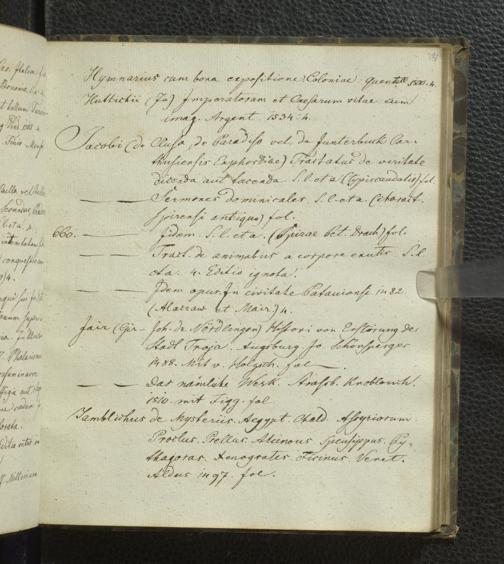 Hymnarius cum bona expositione. Coloniae. Quentell 1501. 4.
Huttichii (Jo) Imperatorum et Caesarum vitae cum
imag. Argent. 1534. 4.
Jacobi (de Clusa, de Paradiso vel de Junterbuck Car-
thusiensis Erphordiae) Tractatus de veritate
dicenda aut tacenda. S. l. et a. (typis caudatis) fol.
— — Sermones dominicales. S. l. et a. (charact.
Spirensi antiquo) fol.
660. — — Idem. S. l. et a. (Spirae Pet. Drach) fol.
— — Tract. de animabus a corpore exutis. S. l.
et a. 4. Editio ignota!
— — Idem opus. In civitate Pataviensi 1482
(Alacraw et Mair) 4.
Jair (Gir- Joh. de Nördlingen) Histori von Erstörung der
Stadt Troja. Augsburg Jo. Schönsperger
1488. Mit v. Holzsch. fol.
— — das nämliche Werk. Strassb. Knoblouch.
1510. mit Figg. fol
Iamblichus de Mysteriis. Aegypt. Chald. Assyriorum
Proclus. Psellus. Alcinous. Speusippus. Py-
thagoras. Xenogrates. Ficinus. Venet.
Aldus 1497. fol.